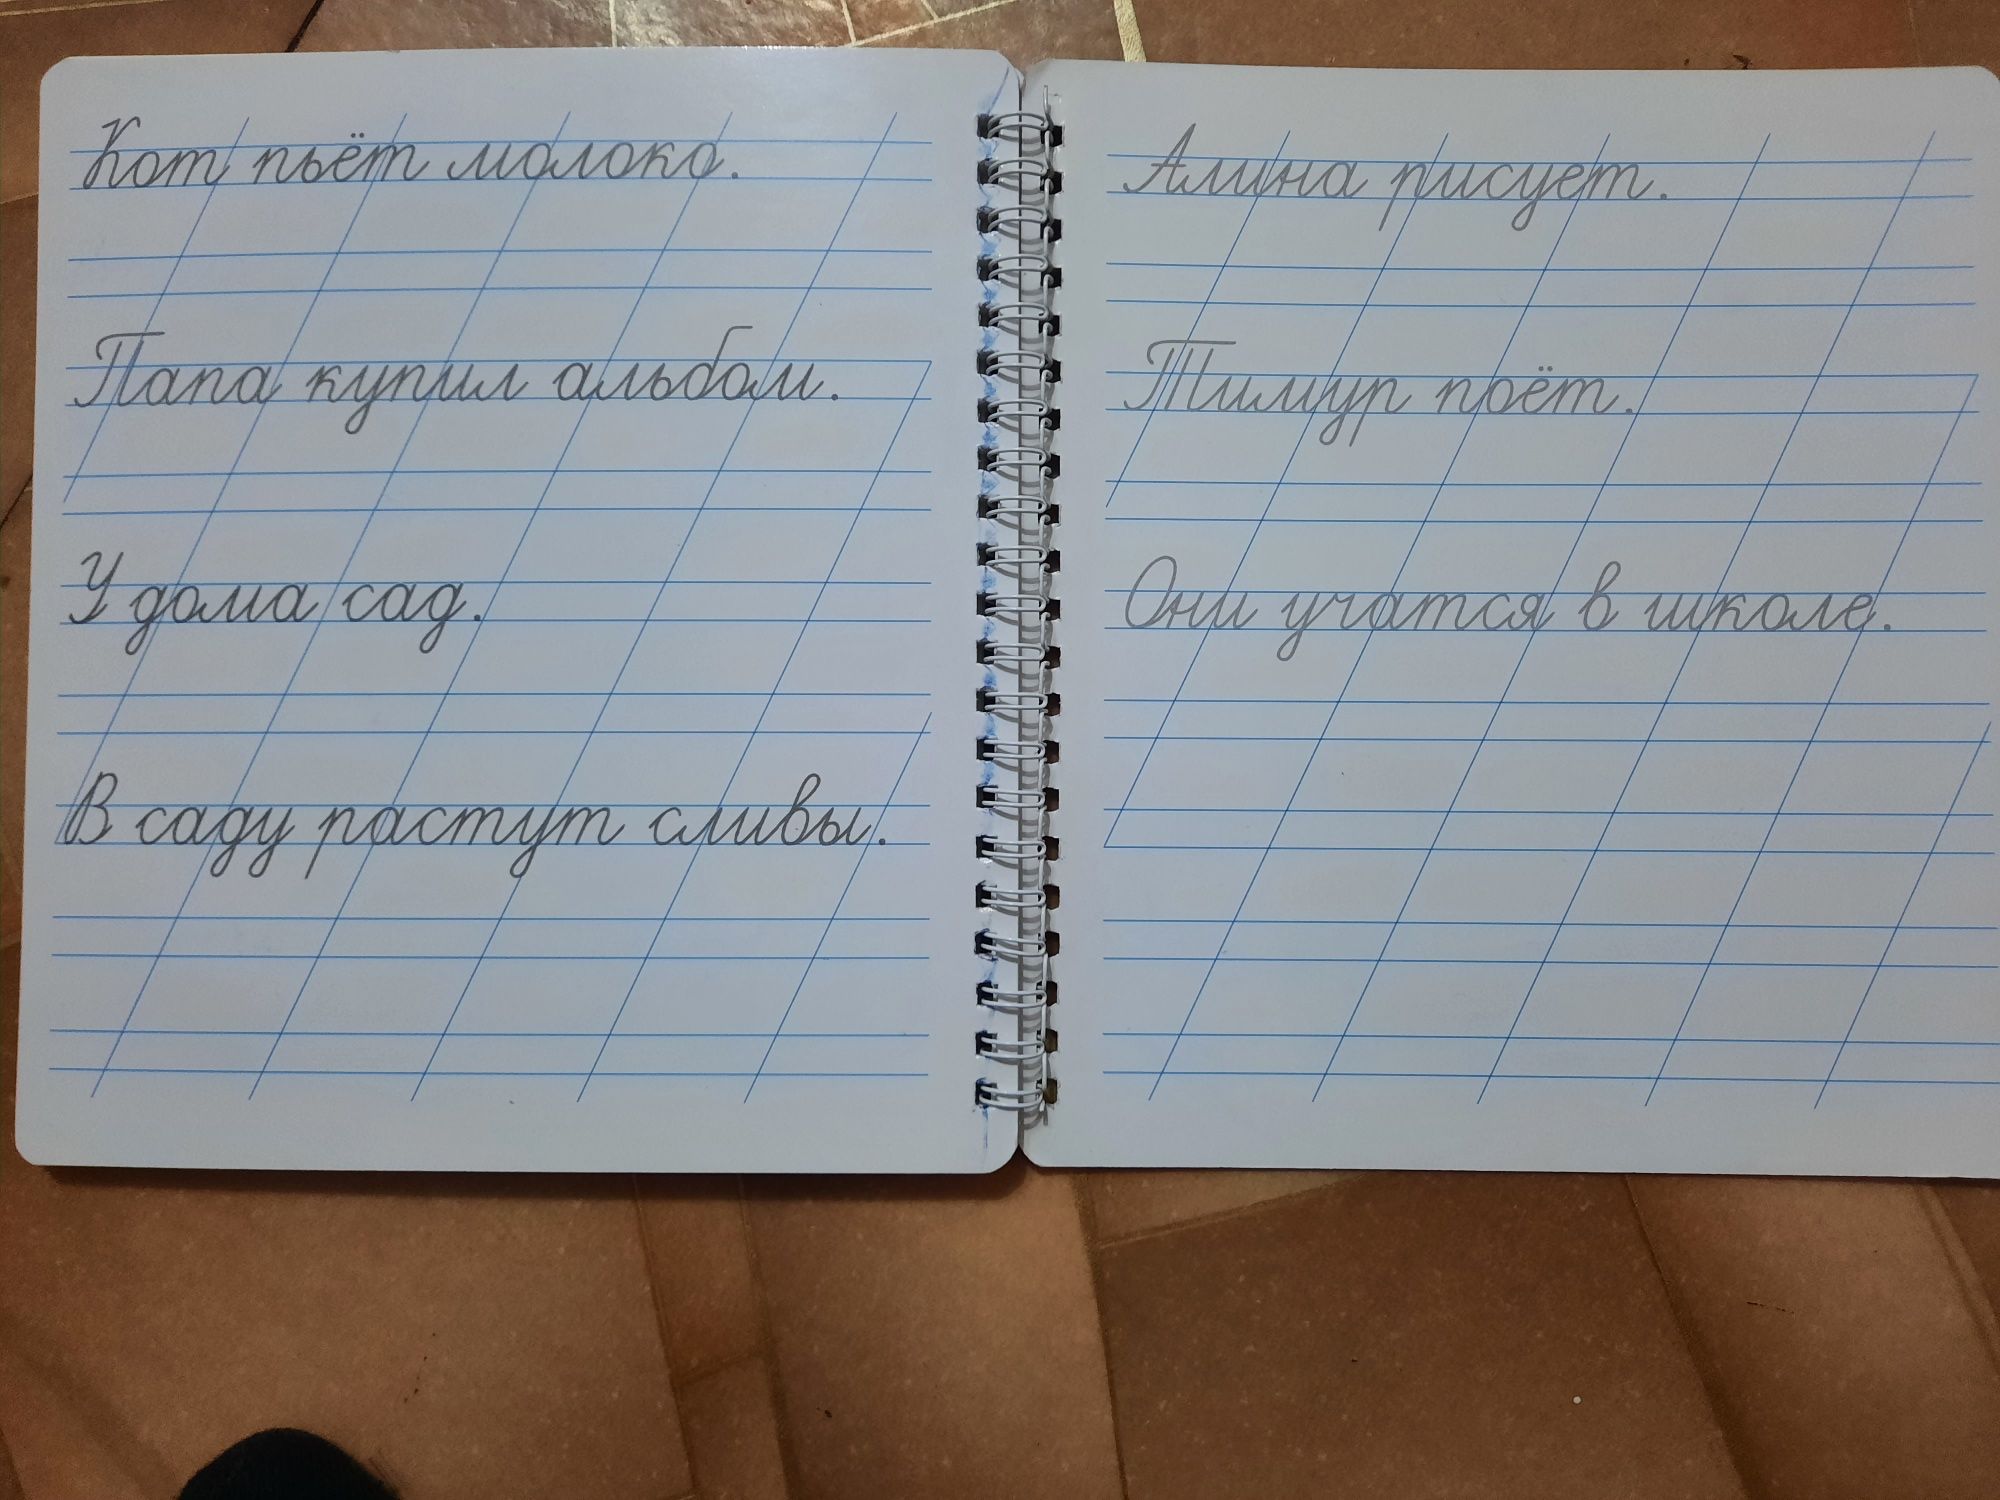 Кот пьёт молоко.
Папа купил альбом.
У дома сад.
В саду растут сливы.
Алина рисует.
Тимур поёт.
Они учатся в школе.